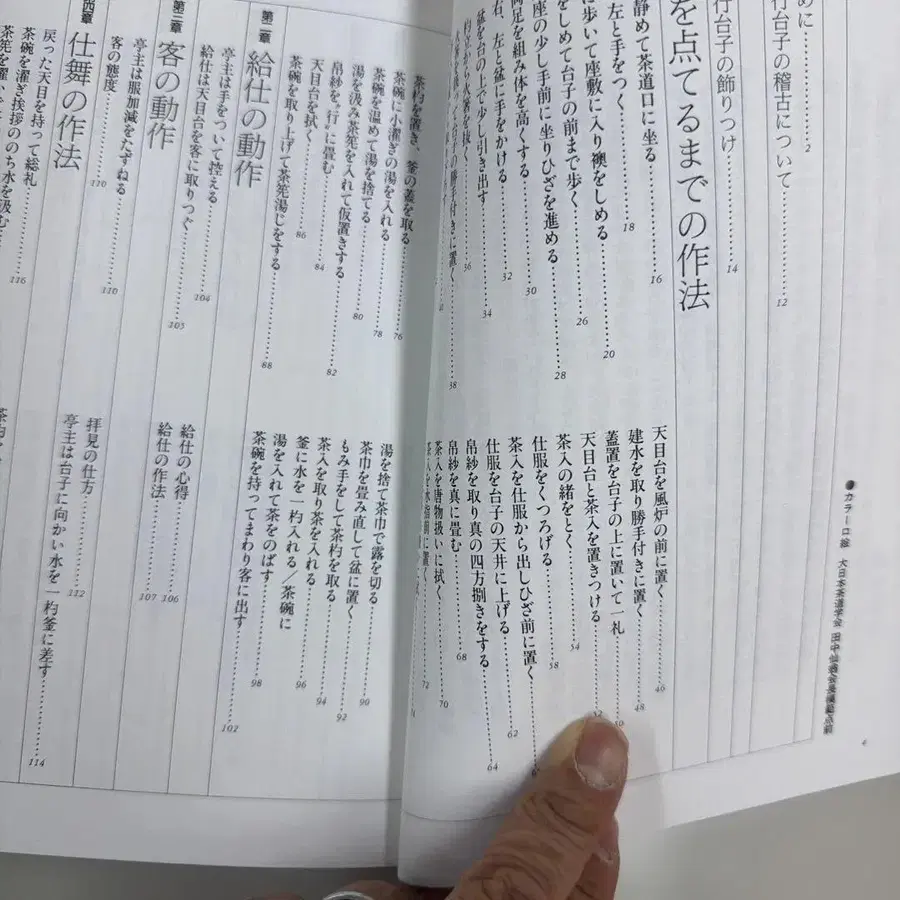 めに……2
行台子の稽古について……12
行台子の飾りつけ……14
を点てるまでの作法
静めて茶道口に坐る……16
左と手をつく……18
に歩いて座敷に入り襖をしめる……20
をしめて台子の前まで歩く……26
座の少し手前に坐りひざを進める……28
両足を組み体を高くする……30
右、左と盆に手をかける……32
盆を台の上で少し引き出す……34
杓立から火箸を抜く……36
勝手付きに置く……38
天目台を風炉の前に置く……46
建水を取り勝手付きに置く……48
蓋置を台子の上に置いて一礼……50
天目台と茶入を置きつける……52
茶入の緒をとく……54
仕服をくつろげる……58
茶入を仕服から出しひざ前に置く
仕服を台子の天井に上げる……62
帛紗を取り真の四方捌きをする……64
帛紗を真に畳む……68
茶入を唐物扱いに拭く……70
茶入を水指前に置く……72
●カラー口絵 大日本茶道学会 田中仙翁会長模範点前
4
茶杓を置き、釜の蓋を取る……76
茶碗に小濯ぎの湯を入れる……78
茶碗を温めて湯を捨てる……80
湯を汲み茶筅を入れて仮置きする……82
帛紗を〝行〟に畳む……84
天目台を拭く……86
茶碗を取り上げて茶筅湯じをする……88
湯を捨て茶巾で露を切る……90
茶巾を畳み直して盆に置く……92
もみ手をして茶杓を取る……94
茶入を取り茶を入れる……96
釜に水を一杓入れる/茶碗に
湯を入れて茶をのばす……98
茶碗を持ってまわり客に出す……102
第二章
給仕の動作
亭主は手をついて控える……104
給仕は天目台を客に取りつぐ……105
給仕の心得……106
給仕の作法……107
第三章
客の動作
亭主は服加減をたずねる……110
客の態度……110
拝見の仕方……112
第四章
仕舞の作法
戻った天目を持って総礼……116
茶碗を濯ぎ挨拶ののち水を汲む
亭主は台子に向かい水を一杓釜に差す……114